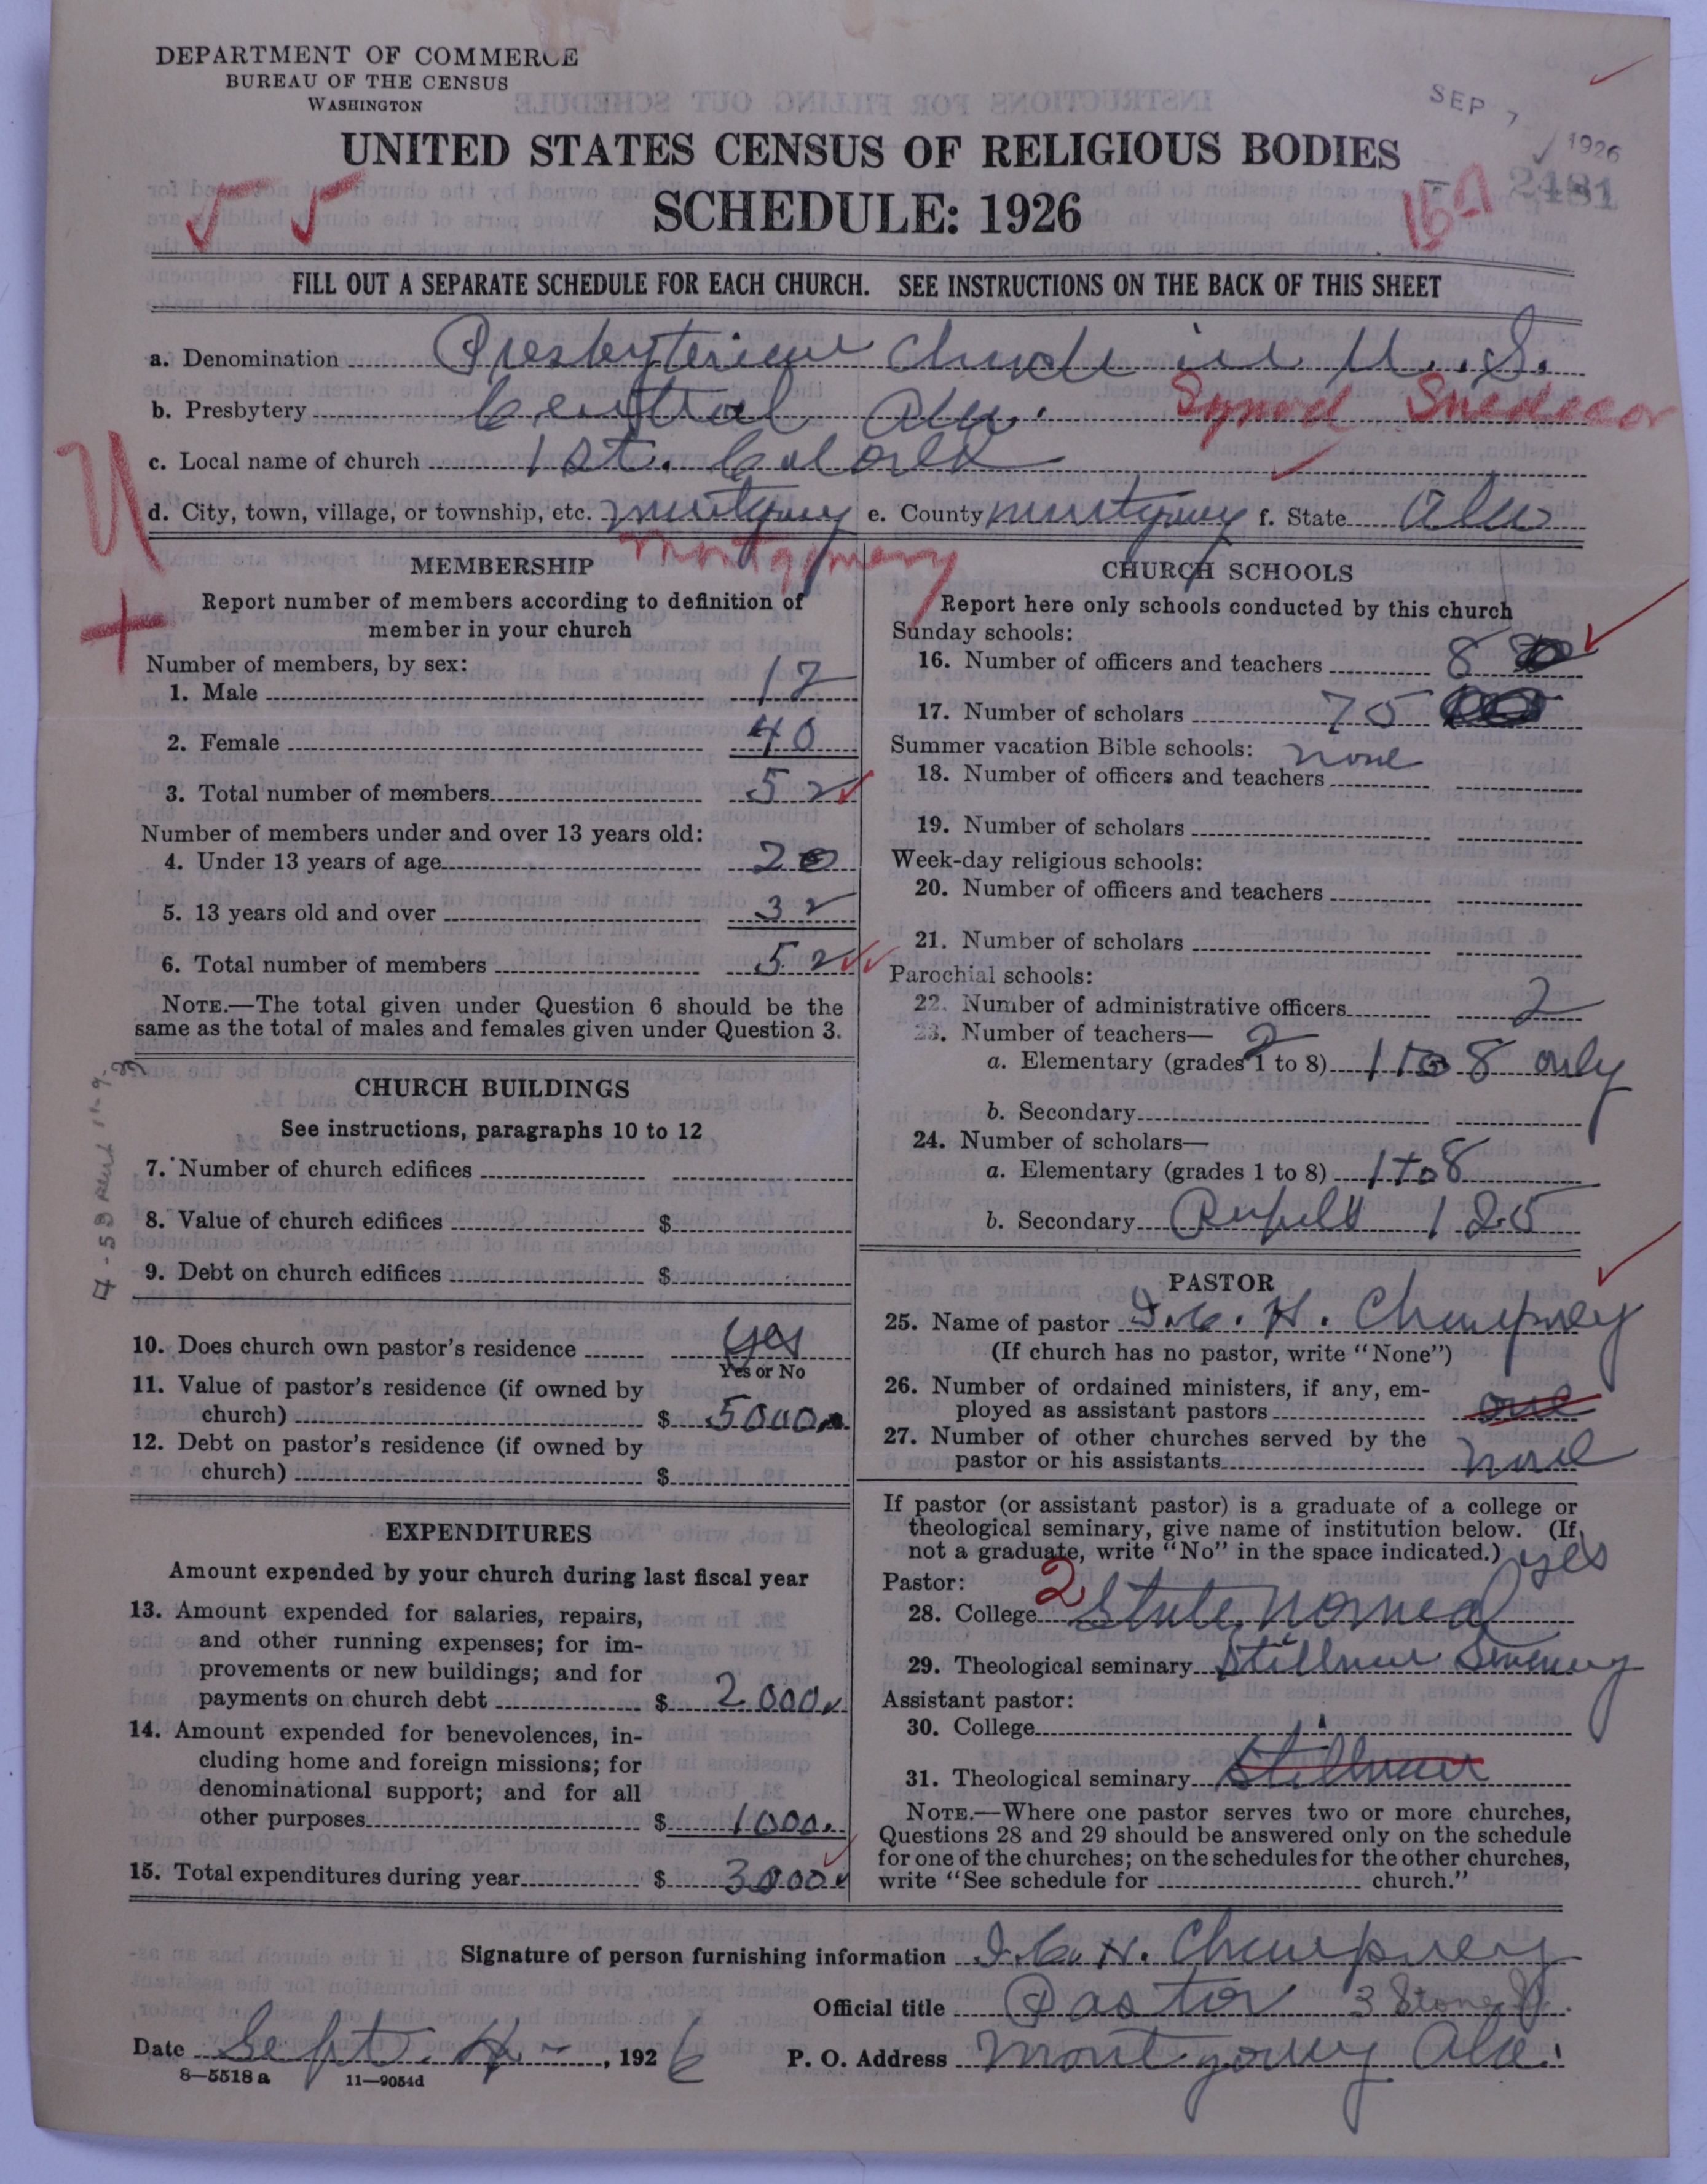 DEPARTMENT OF COMMERCE
BUREAU OF THE CENSUS
WASHINGTON
SEP 7 1926
UNITED STATES CENSUS OF RELIGIOUS BODIES
SCHEDULE: 1926
16-A 2481
FILL OUT A SEPARATE SCHEDULE FOR EACH CHURCH. SEE INSTRUCTIONS ON THE BACK OF THIS SHEET
a. Denomination Presbyterian Church in U. S.
b. Presbytery Central Ala. Synod Snedecor
c. Local name of church 1st. Colored
d. City, town, village, or township, etc. Montgomery e. County Montgomery f. State Ala
Montgomery
MEMBERSHIP
Report number of members according to definition of
member in your church
Number of members, by sex:
1. Male 12
2. Female 40
3. Total number of members 52
Number of members under and over 13 years old:
4. Under 13 years of age 20
5. 13 years old and over 32
6. Total number of members 52
NOTE.—The total given under Question 6 should be the
same as the total of males and females given under Question 3.
CHURCH BUILDINGS
See instructions, paragraphs 10 to 12
7. Number of church edifices
8. Value of church edifices $
9. Debt on church edifices $
10. Does church own pastor's residence yes
Yes or No
11. Value of pastor's residence (if owned by
church) $ 5000
12. Debt on pastor's residence (if owned by
church) $
EXPENDITURES
Amount expended by your church during last fiscal year
13. Amount expended for salaries, repairs,
and other running expenses; for im-
provements or new buildings; and for
payments on church debt $ 2000
14. Amount expended for benevolences, in-
cluding home and foreign missions; for
denominational support; and for all
other purposes $ 1000.
15. Total expenditures during year $ 3000
CHURCH SCHOOLS
Report here only schools conducted by this church
Sunday schools:
16. Number of officers and teachers 8
17. Number of scholars 75
Summer vacation Bible schools: none
18. Number of officers and teachers
19. Number of scholars
Week-day religious schools:
20. Number of officers and teachers
21. Number of scholars
Parochial schools:
22. Number of administrative officers 2
23. Number of teachers— 2
a. Elementary (grades 1 to 8) 1 to 8 only
b. Secondary
24. Number of scholars—
a. Elementary (grades 1 to 8) 1 to 8
b. Secondary 125
PASTOR
25. Name of pastor I. C. H. Champney
(If church has no pastor, write "None")
26. Number of ordained ministers, if any, em-
ployed as assistant pastors one
27. Number of other churches served by the
pastor or his assistants none
If pastor (or assistant pastor) is a graduate of a college or
theological seminary, give name of institution below. (If
not a graduate, write "No" in the space indicated.) yes
Pastor: 2
28. College State Normal
29. Theological seminary Stillman Seminary
Assistant pastor:
30. College
31. Theological seminary Stillman
NOTE.—Where one pastor serves two or more churches,
Questions 28 and 29 should be answered only on the schedule
for one of the churches; on the schedules for the other churches,
write "See schedule for church."
Signature of person furnishing information I. C. H. Champney
Official title Pastor 3 Stone St.
Date Sept. 4-, 1926 P. O. Address Montgomery Ala.
8—5518 a 11—9054d